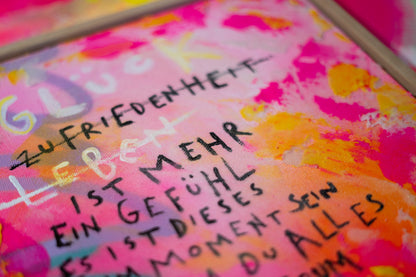 GLÜCK
ZUFRIEDENHEIT
LEBEN
IST MEHR
EIN GEFÜHL
ES IST DIESES
MOMENT SEIN
DU ALLES